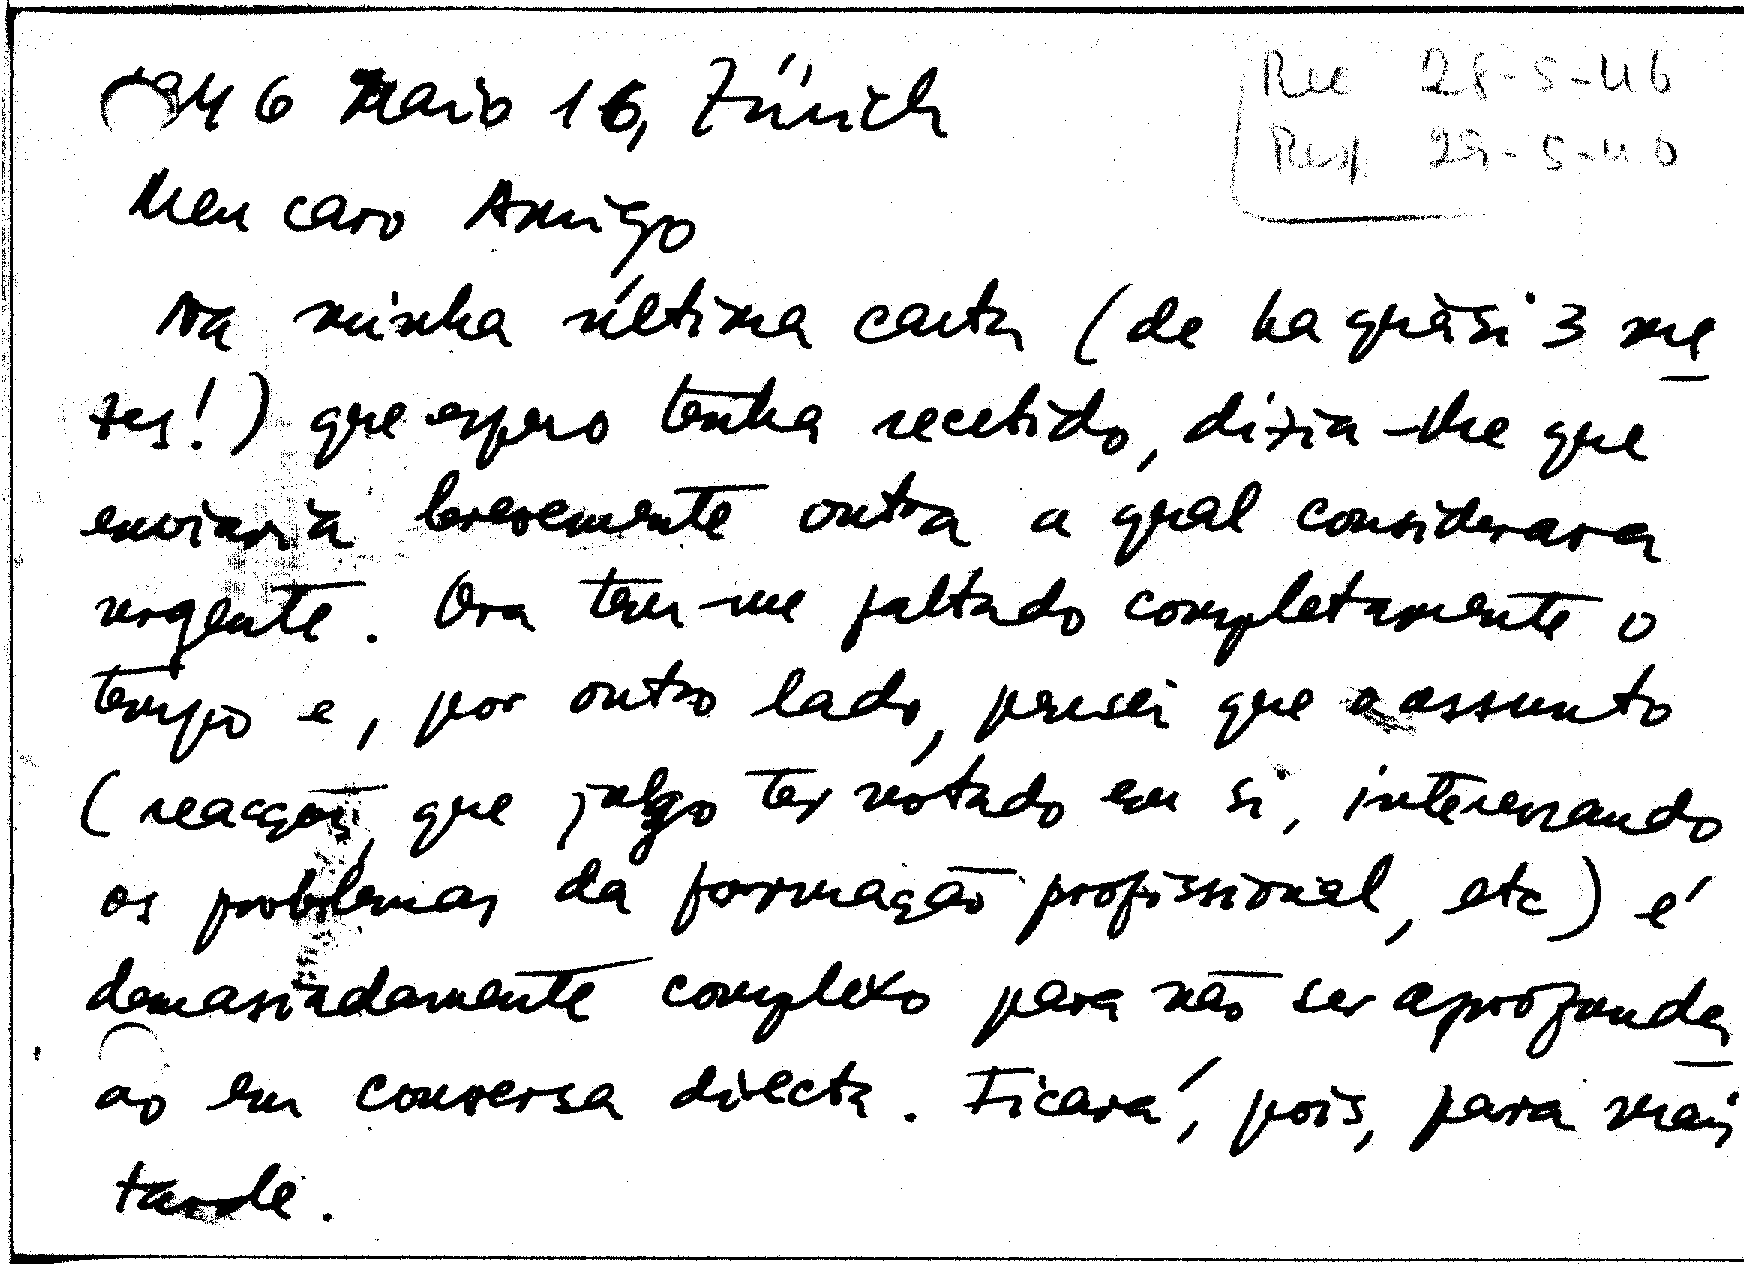 1946 Maio 16, Zürich
Rec 28-5-46
Resp 29-5-46
Meu caro Amigo
Na minha última carta (de ha quàsi 3 me
zes!) que espero tenha recebido, dizia-lhe que
enviaria brevemente outra a qual considerara
urgente. Ora tem-me faltado completamente o
tempo e, por outro lado, pensei que o assunto
(reacção, que julgo ter notado em si, interessando
os problemas da formação profissional, etc) é
demasiadamente complexo para não ser aprofunda
do em conversa directa. Ficará, pois, para mais
tarde.